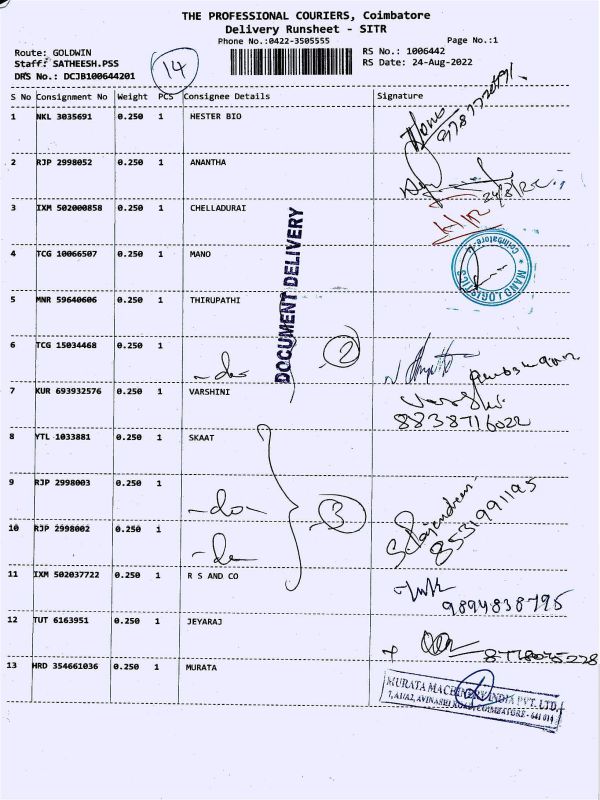 THE PROFESSIONAL COURIERS, Coimbatore
Delivery Runsheet - SITR
Phone No.:0422-3505555
Page No.:1
Route: GOLDWIN
RS No.: 1006442
Staff: SATHEESH.PSS
14
RS Date: 24-Aug-2022
DRS No.: DCJB100644201
S No Consignment No Weight PCS Consignee Details Signature
1 NKL 3035691 0.250 1 HESTER BIO
2 RJP 2998052 0.250 1 ANANTHA
24/8/22
3 IXM 502000858 0.250 1 CHELLADURAI
DOCUMENT DELIVERY
4 TCG 10066507 0.250 1 MANO
Coimbatore
MANO LOGISTICS
5 MNR 59640606 0.250 1 THIRUPATHI
6 TCG 15034468 0.250 1 -do- 2
7 KUR 693932576 0.250 1 VARSHINI
8838716022
8 YTL 1033881 0.250 1 SKAAT
9 RJP 2998003 0.250 1 -do- 3
S. Rajendren
8531991195
10 RJP 2998002 0.250 1 -do-
11 IXM 502037722 0.250 1 R S AND CO
9894838795
12 TUT 6163951 0.250 1 JEYARAJ
8778075228
13 HRD 354661036 0.250 1 MURATA
MURATA MACHINERY INDIA PVT. LTD.,
AVINASHI ROAD, COIMBATORE - 641 014